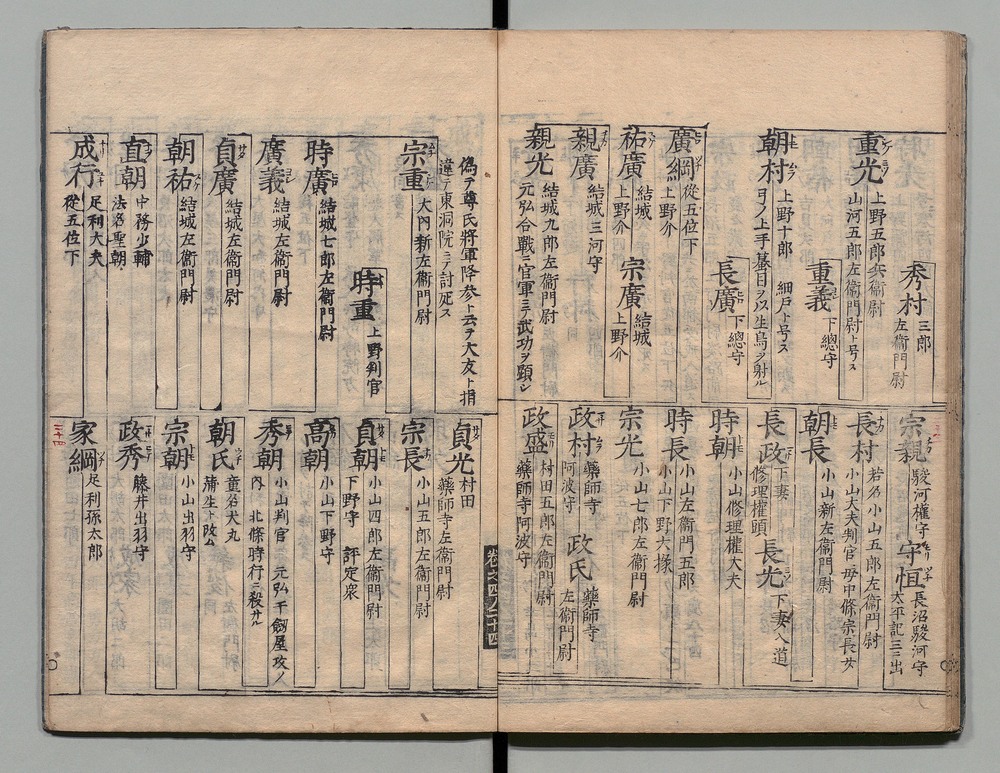 秀村
三郎
左衞門尉
重光
上野五郎兵衞尉
山河五郎左衞門尉ト号ス
重義
下總守
朝村
上野十郎 細戸ト号ス
弓ノ上手蟇目ヲ以生鳥ヲ射ル
長廣
下總守
廣綱
從五位下
上野介
祐廣
結城
上野介
宗廣
結城
上野介
親廣
結城三河守
親光
結城九郎左衞門尉
元弘合戰ニ官軍ニテ武功ヲ顕シ
宗親
駿河權守
守恒
長沼駿河守
太平記三ニ出
長村
若名小山五郎左衞門尉
小山大夫判官 毋中條宗長女
朝長
小山新左衞門尉
長政
下妻
修理權頭
長光
下妻入道
時朝
小山修理權大夫
時長
小山左衞門五郎
小山下野大掾
宗光
小山七郎左衞門尉
政村
藥師寺
阿波守
政氏
藥師寺
左衞門尉
政盛
村田五郎左衞門尉
藥師寺阿波守
偽テ尊氏將軍降参ト云テ大友ト指
違テ東洞院ニテ討死ス
宗重
大内新左衞門尉
時重
上野判官
時廣
結城七郎左衞門尉
廣義
結城左衞門尉
貞廣
結城左衞門尉
朝祐
結城左衞門尉
直朝
中務少輔
法名聖朝
成行
足利大夫
從五位下
貞光
村田
藥師寺左衞門尉
宗長
小山五郎左衞門尉
貞朝
小山四郎左衞門尉
下野守 評定衆
高朝
小山下野守
秀朝
小山判官 元弘千劔屋攻ノ
内 北條時行ニ殺サル
朝氏
童名犬丸
蒲生ト改ム
宗朝
小山出羽守
政秀
藤井出羽守
家綱
足利孫太郎
卷之四ノ二十四